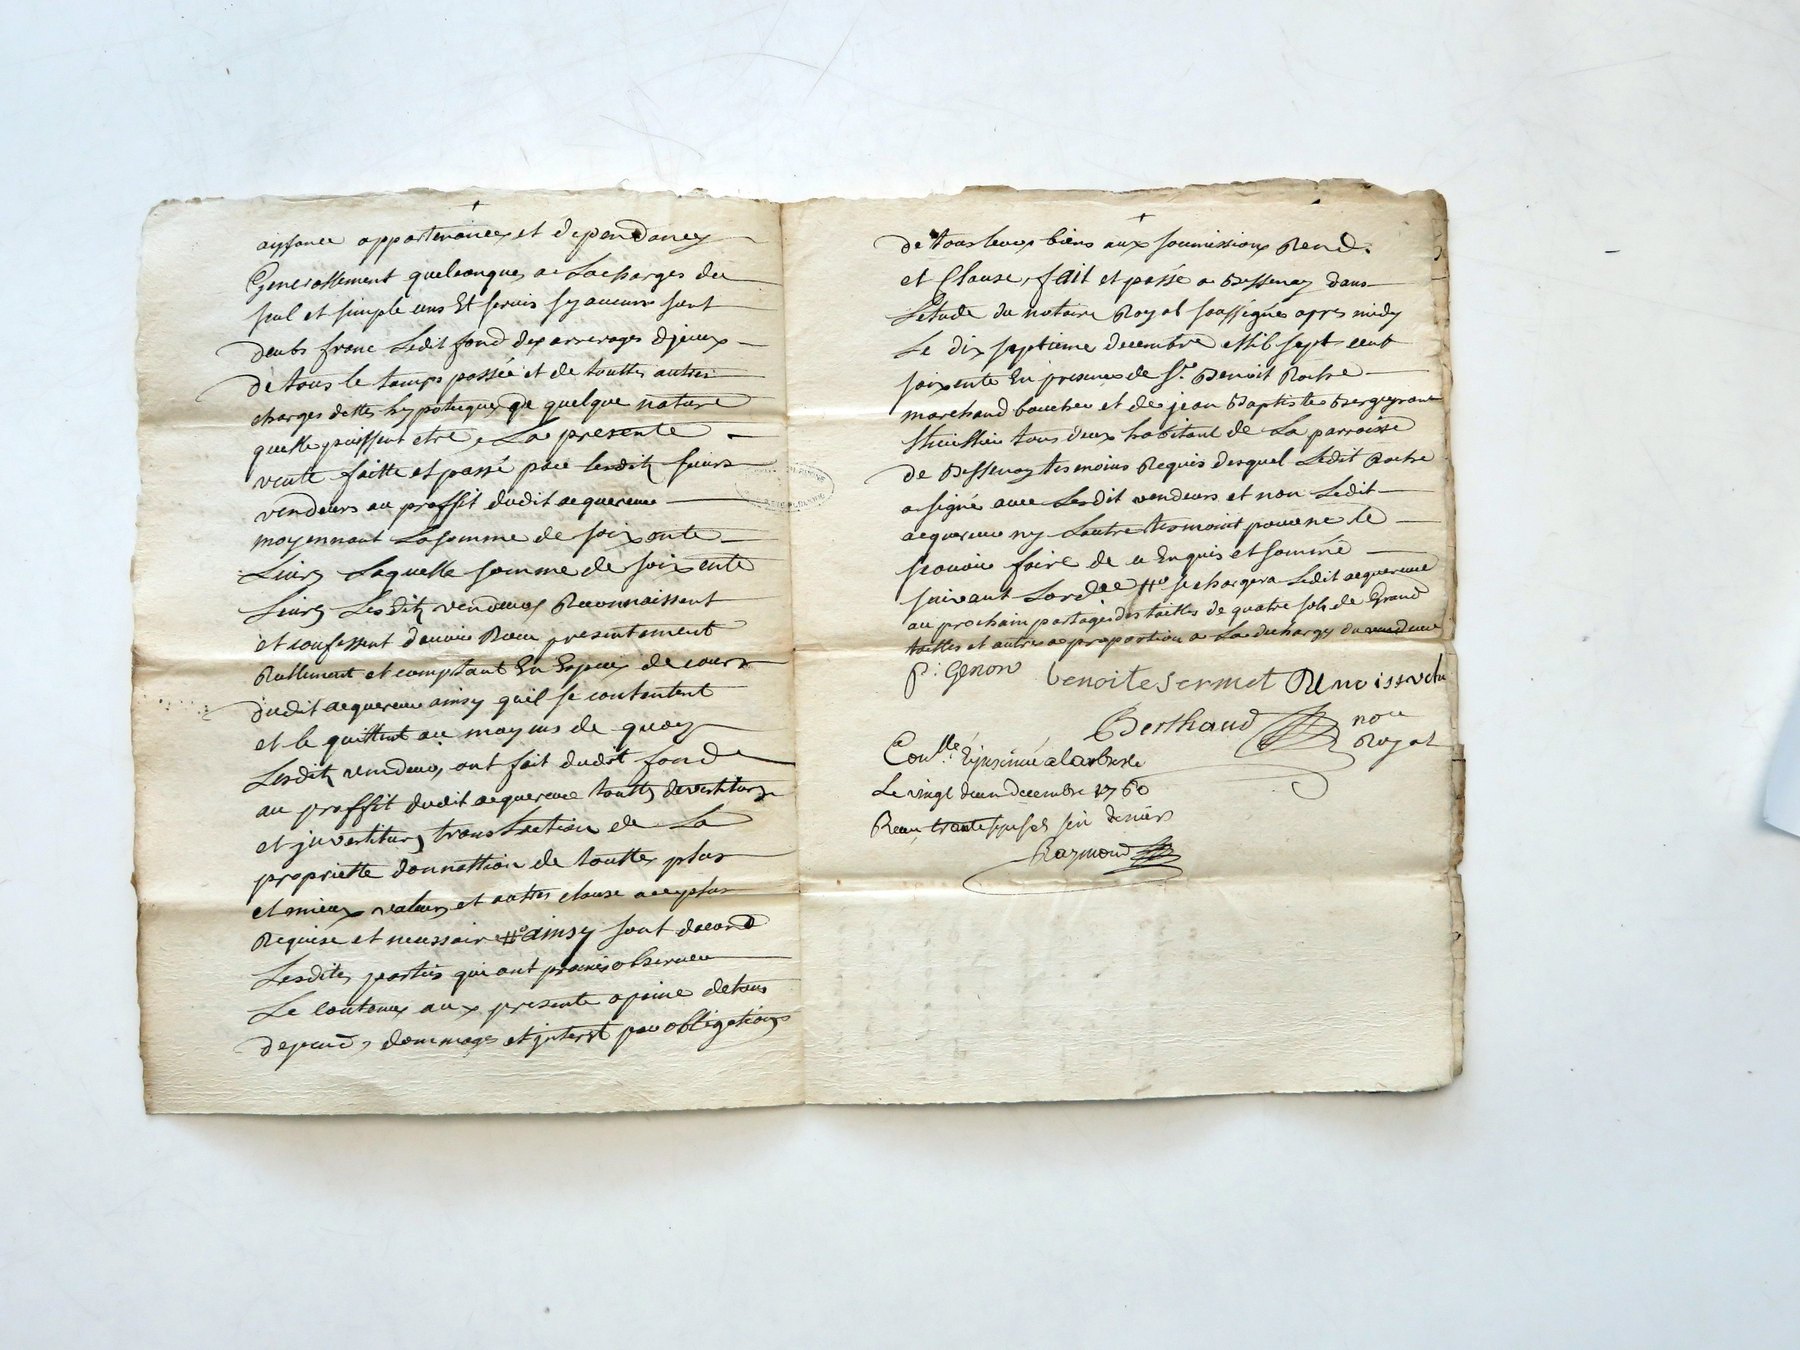 aisance appartenances et dependances
Generallement quelconques a La charges du
seul et simple cens Et servis sy aucuns sont
deubs franc Ledit fond des arrerages d'jceux
de tous le temps passée et de touttes autres
charges dettes hypoteques de quelque nature
quelle puissent etre, La presente
vente faitte et passé par lesdits sieurs
vendeurs au proffit dudit acquereur
moyennant La somme de soixante
Livres Laquelle somme de soixente
Livres Lesdits vendeurs Reconnaissent
et confessent d'avoir Receu presentement
Reellement et comptant En Especes de cours
dudit acquereur ainsy quil se contentent
et le quittent au moyens de quoy
Lesdits vendeurs ont fait dudit fond
au proffit dudit acquereur touttes devestitures
et jnvestitures translaction de La
propriette donnattion de touttes plus
et mieux values et autres clause a ce plus
Requise et necessaire ainsy sont d'acord
Lesdites parties qui ont promis observer
Le contenus aux presente a peine de tous
depend, dommages et jnterest par obligations
de tous leurs biens aux soumissions Rend.
et Clause, fait et passé a Bessenay dans
L'etude du notaire Royal soussignés apres midy
Le dix septieme decembre Mil sept cent
soixente En presence de Sr. Benoit Roche
marchand boucher et de jean Baptiste
tous deux habitant de La parroisse
de Bessenay tesmoins Requis desquel Ledit Roche
a signé avec Lesdit vendeurs et non Ledit
acquereur ny L'autre tesmoint pour ne le
scavoir faire de ce Enquis et sommé
suivant L'ordce se chargera Ledit acquereur
au prochain partages des tailles de quatre sols de Grand
tailles et autres a proportion a La decharges du vendeur
P. Genon benoite sermet
Berthaud nore
Royal
Conllé a larbresle
Le vingt deux decembre 1760
Receu trante sols six deniers
Raymond